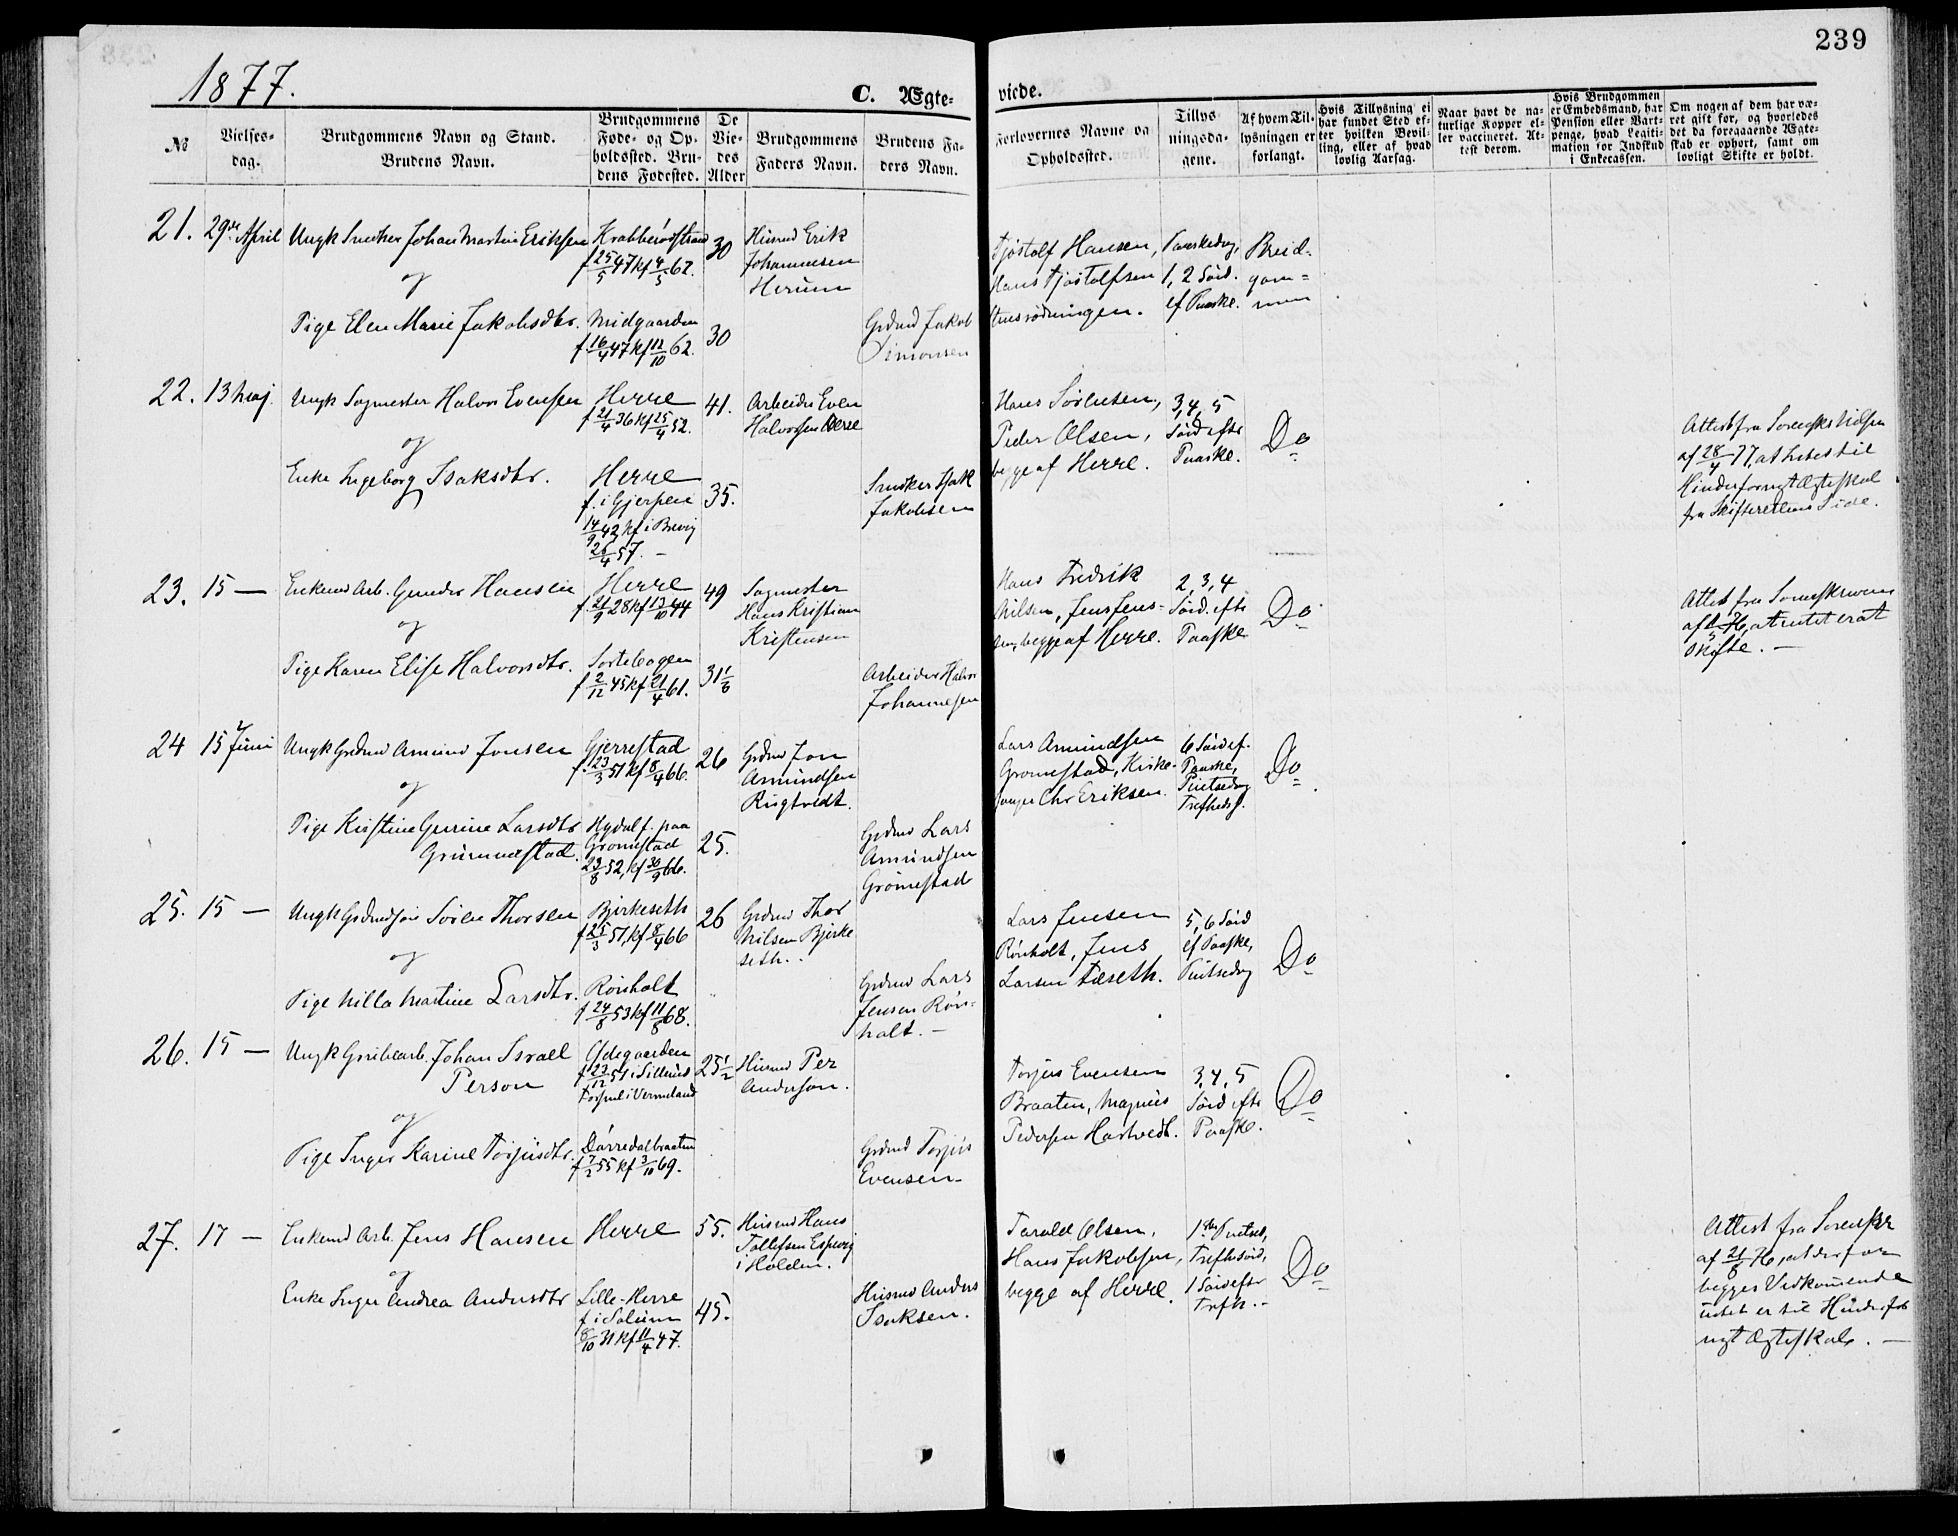 239
1877.
C. Ægte-
viede.
№
Vielses-
dag.
Brudgommens Navn og Stand.
Brudens Navn.
Brudgommens
Føde- og Op-
holdssted. Bru-
dens Fødested.
De
Vie-
des
Alder
Brudgommens
Faders Navn.
Brudens Fa-
ders Navn.
Forlovernes Navne og
Opholdssted.
Tillys-
ningsda-
gene.
Af hvem Til-
lysningen er
forlangt.
Hvis Tillysning ei
har fundet Sted ef-
ter hvilken Bevil-
ling, eller af hvad
lovlig Aarsag.
Naar havt de na-
turlige Kopper el-
ler vaccineret. At-
test derom.
Hvis Brudgommen
er Embedsmand, har
Pension eller Vart-
penge, hvad Legiti-
mation for Indskud
i Enkecassen.
Om nogen af dem har væ-
ret gift før, og hvorledes
det da foregaaende Ægte-
skab er ophørt, samt om
lovligt Skifte er holdt.
21. 29de April Ungk Snedker Johan Martin Eriksen
og
Pige Elen Marie Jakobsdtr.
Krabberødstrand
f 25/5 47 kf 4/5 62.
Midgaarden
f. 16/4 47 kf 12/10 62.
30
30
Husmd Erik
Johannesen
Herum
Grdmd Jakob
Simonsen
Tjøstolf Hansen,
Hans Tjøstolfsen
Paaskedag,
1, 2 Sønd.
ef Paaske.
Brud-
gom-
men
22. 13 Maj Ungk Sagmester Halvor Evensen
og
Enke Ingeborg Isaksdtr.
Herre
f 21/4 36 kf 25/4 52.
Herre
f. i Gjerpen
14/9 42, kf i Brevig
26/4 57. –
41.
35.
Arbeider Even
Halvorsen Herre
Snedker Isak
Jakobsen
Hans Sørensen,
Peder Olsen,
begge af Herre.
3, 4, 5
Sønd efter
Paaske.
Do
Attest fra Sorenskr Nilsen
af 28/4 77, at Intet til
Hinder for nyt Ægteskab
fra Skifterettens Side.
23. 15 — Enkemd Arb. Gunder Hansen
og
Pige Karen Elise Halvorsdtr.
Herre
f 21/9 28 kf 13/10 44
f 2/12 45 kf 21/4 61.
49
31 1/6
Sagmester
Hans Kristian
Kristensen
Arbeider Halvor
Johannesen
Hans Fredrik
Nilsen, Jens Jens-
sen, begge af Herre.
2, 3, 4
Sønd. efter
Paaske
Do
Attest fra Sorenskriveren
at intet er at
skifte. —
24 15 Juni Ungk Grdmd Amund Jonsen
og
Pige Kirstine Gurine Larsdtr
Grummestad.
Gjerrestad
f. 23/3 51 kf 8/4 66.
f. paa
Grømestad
23/8 52, kf 30/9 66.
26
25.
Grdmd Jon
Amundsen
Rugtvedt.
Grdmd Lars
Amundsen
Grømestad
Lars Amundsen
Gromestad, Kirke-
sanger Chr Eriksen.
6 Sønd ef.
Paaske,
Pintsedag
Trefhedsf.
Do
25. 15 — Ungk Grdmdsøn Søren Thorsen
og
Pige Nilla Martine Larsdtr.
Bjerkeseth
f 25/3 51, kf 8/4 66
Rønholt
f 24/8 53 kf 11/8 68.
26
Grdmd Thor
Nilsen Bjerke
seth.
Grdmd Lars
Jensen Røn-
holt. —
Lars Jensen
Rønholt, Jens
Larsen Aaseth.
5, 6 Sønd
ef Paaske,
Pintsedag
Do
26. 15 — Ungk Grubearb. Johan Israel
Person
og
Pige Inger Karine Torjusdtr.
Ødegaarden
f 23/12 51 i Sillerud
i Vermeland
Dørredalbraaten
f 7/2 55 kf 3/10 69.
25 1/2
Husmd Per
Anderson.
Grdmd Torjus
Evensen –
Torjus Evensen
Braaten, Magnus
Pedersen Hastvedt.
3, 4, 5
Sønd efter
Paaske.
Do
27. 17 — Enkemd Arb. Jens Hansen
og
Enke Inger Andrea Andersdtr
Herre
Lille-Herre
f i Solum
8/10 31 kf 11/4 47.
55.
45.
Husmd Hans
Tollefsen Espevig
i Holden.
Husmd Anders
Isaksen.
Tarald Olsen,
Hans Jakobsen,
begge af Herre.
1ste Pintsed,
Trefhsønd,
1 Sønd efter
Trefh. –
Do
Attest fra Sorenskr
af 21/8 76, at der for
begges Vedkommende
intet er til Hinder for
nyt Ægteskab. —